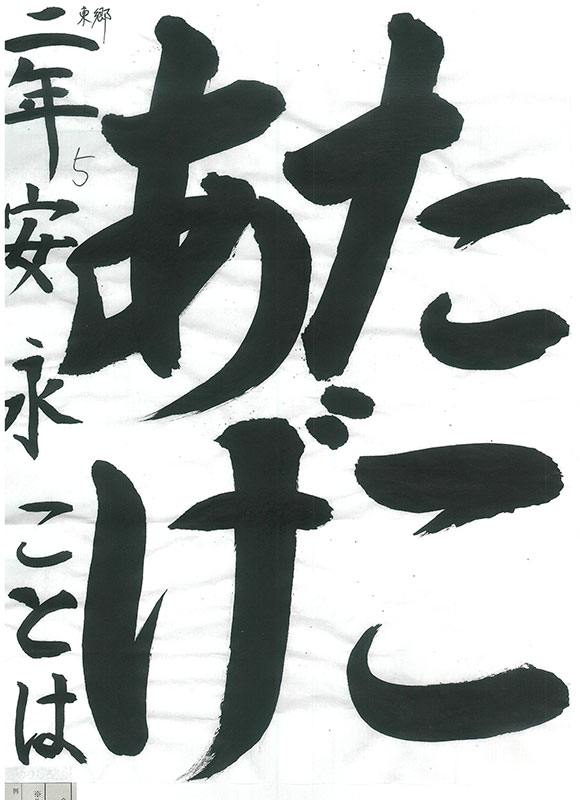 たこ
あげ
東郷
二年安永ことは
5
例
※